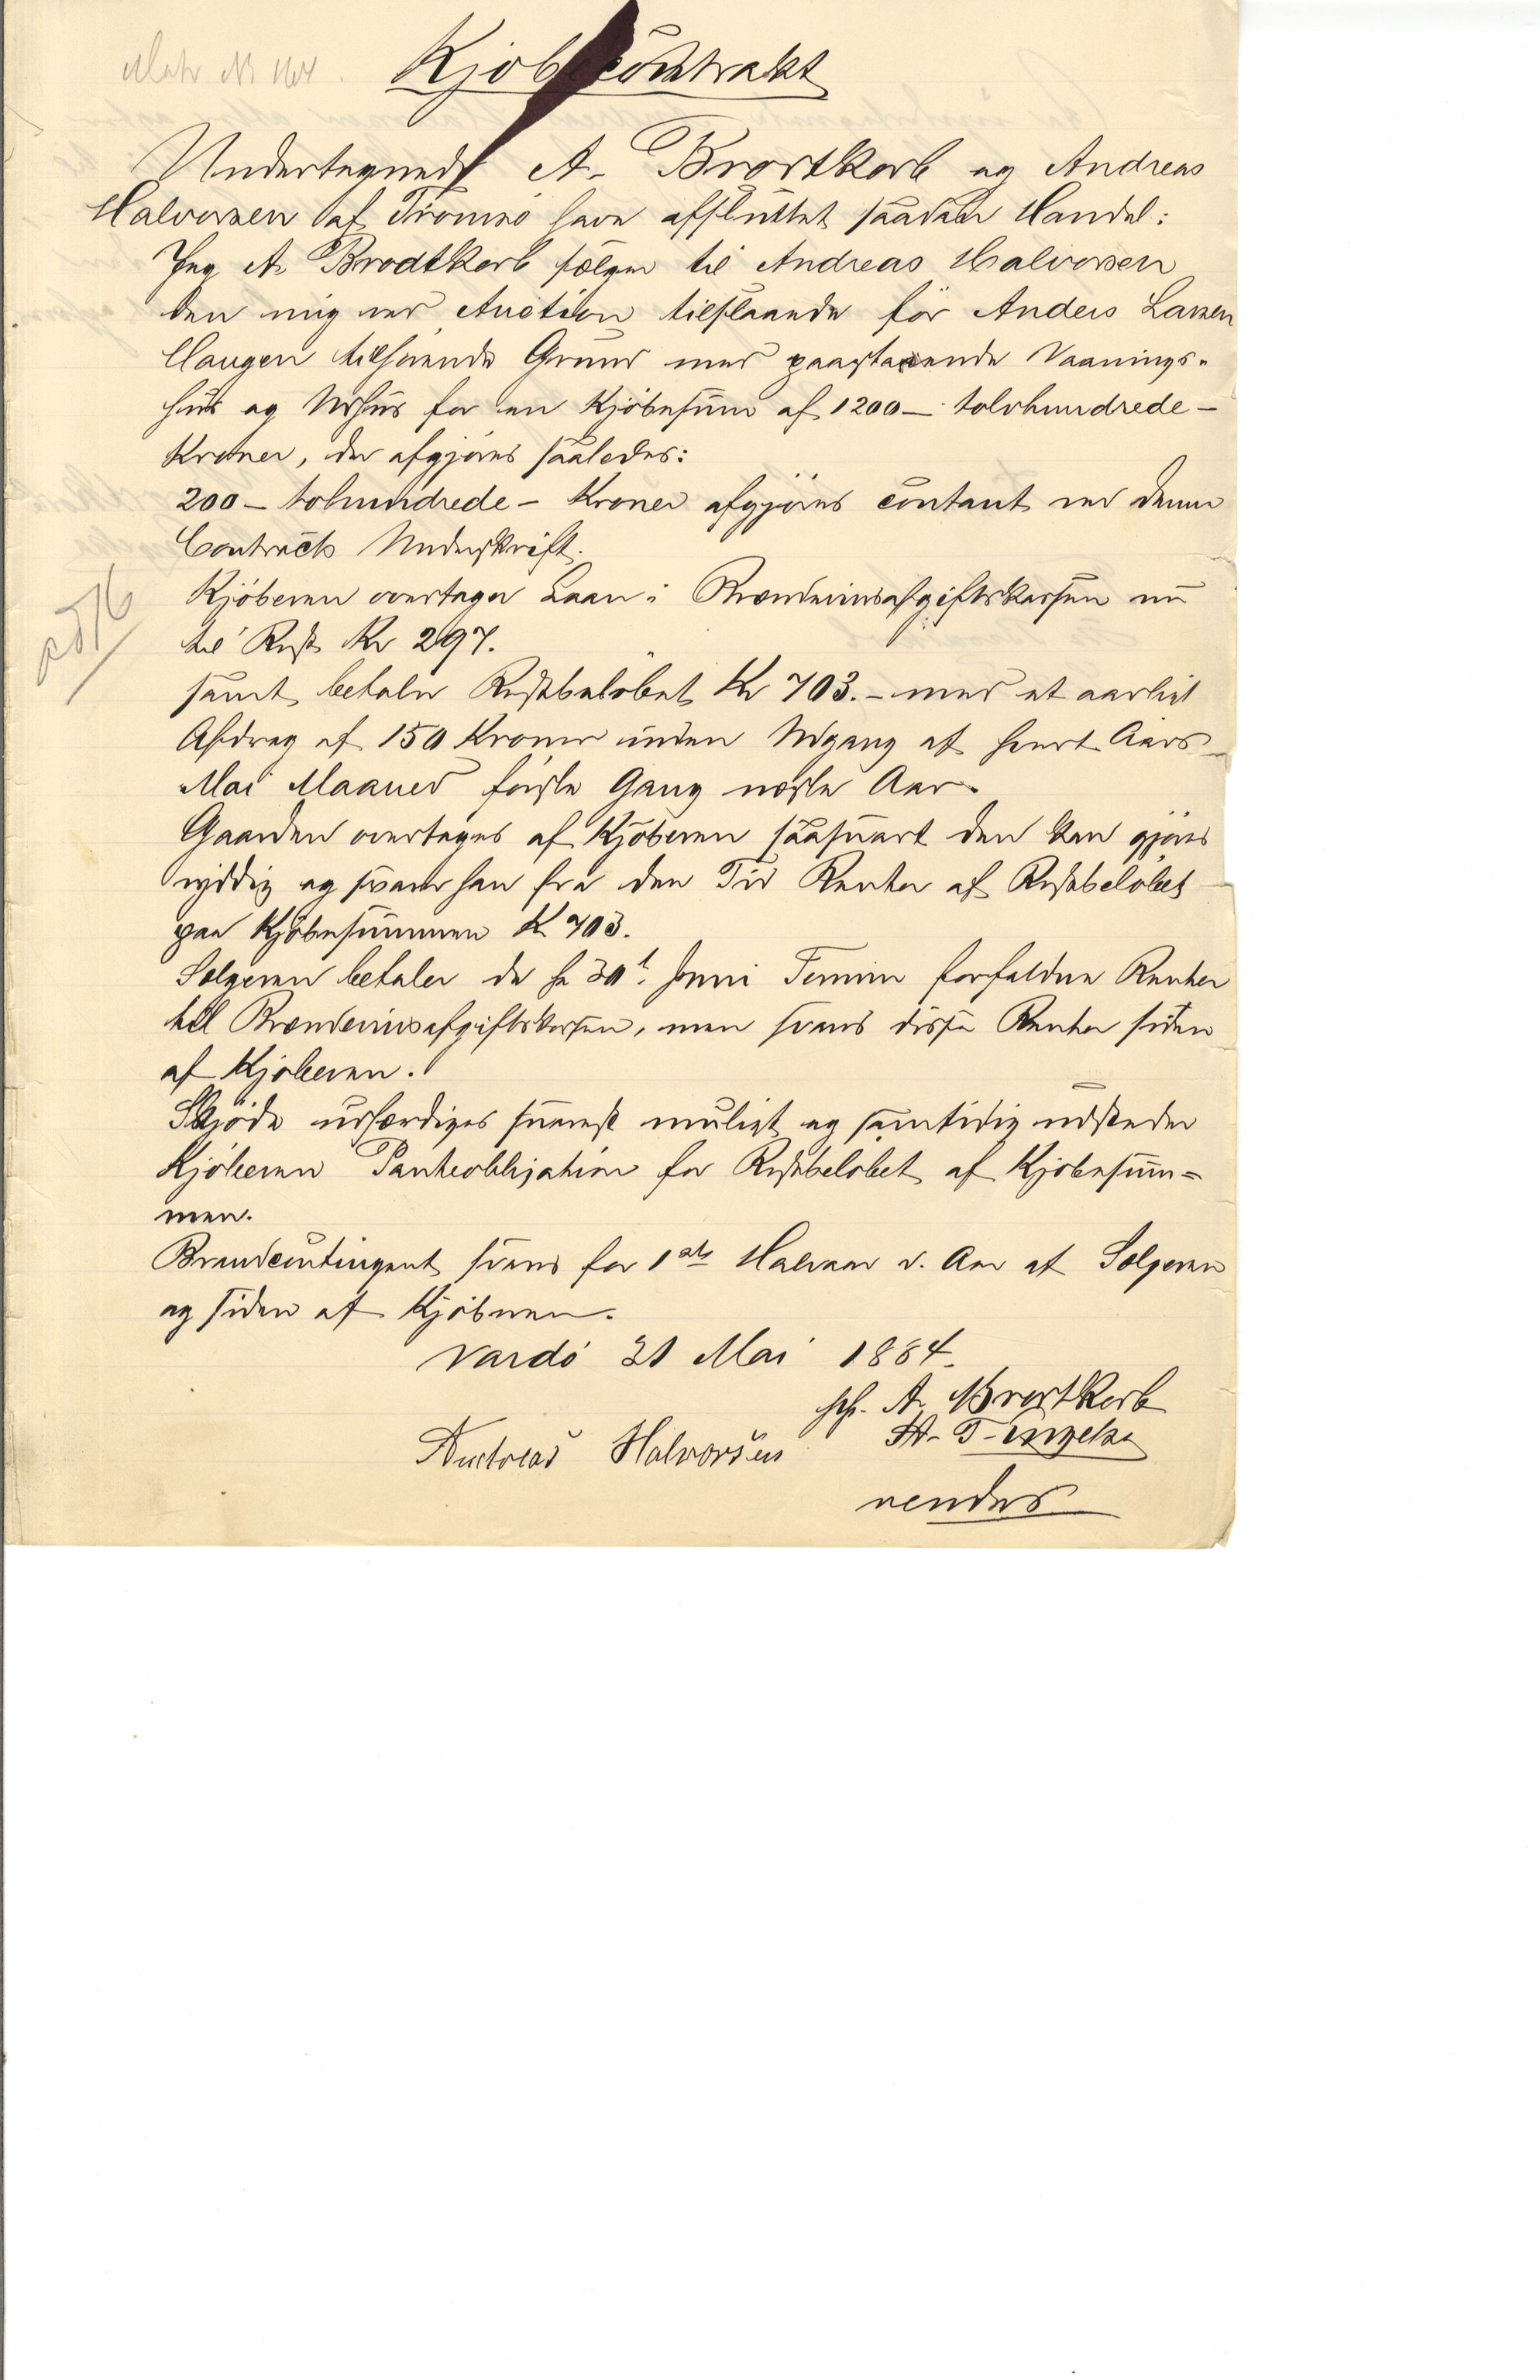 Matr No 164.
Kjøbecontrakt
Undertegnede A. Brodtkorb og Andreas
Halvorsen af Tromsø have afsluttet saadan Handel:
Jeg A. Brodtkorb sælger til Andreas Halvorsen
den mig ved Auction tilslaaede før Anders Larsen
Haugen tilhørende Grund med paastaaende Vaanings-
hus og Udhus for en Kjøbesum af 1200 – tolvhundrede –
Kroner, der afgjøres saaledes:
200 – tohundrede – Kroner afgjøres contant ved denne
Contracts Underskrift.
Kjøberen overtager Laan i Brændevinsafgiftskassen nu
til Rest Kr 297.
samt betaler Restbeløbet Kr 703. – med et aarligt
Afdrag af 150 Kroner inden Udgang af hvert Aars
Mai Maaned første Gang næste Aar.
Gaarden overtages af Kjøberen saasnart den kan gjøres
ryddig og svarer han fra den Tid Renter af Restbeløbet
paa Kjøbesummen K 703.
Sælgeren betaler de pr 30t Juni Termin forfaldne Renter
til Brændevinsafgiftskassen, men svares disse Renter siden
af Kjøberen.
Skjøde udfærdiges snarest muligt og samtidig udsteder
Kjøberen Panteobligation for Restbeløbet af Kjøbesum=
men.
Brandcontingent svares for 1ste Halvaar d. Aar af Sælgeren
og siden af Kjøberen.
Vardø 31 Mai 1884.
A. Brodtkorb
Andreas Halvorsen
vendes